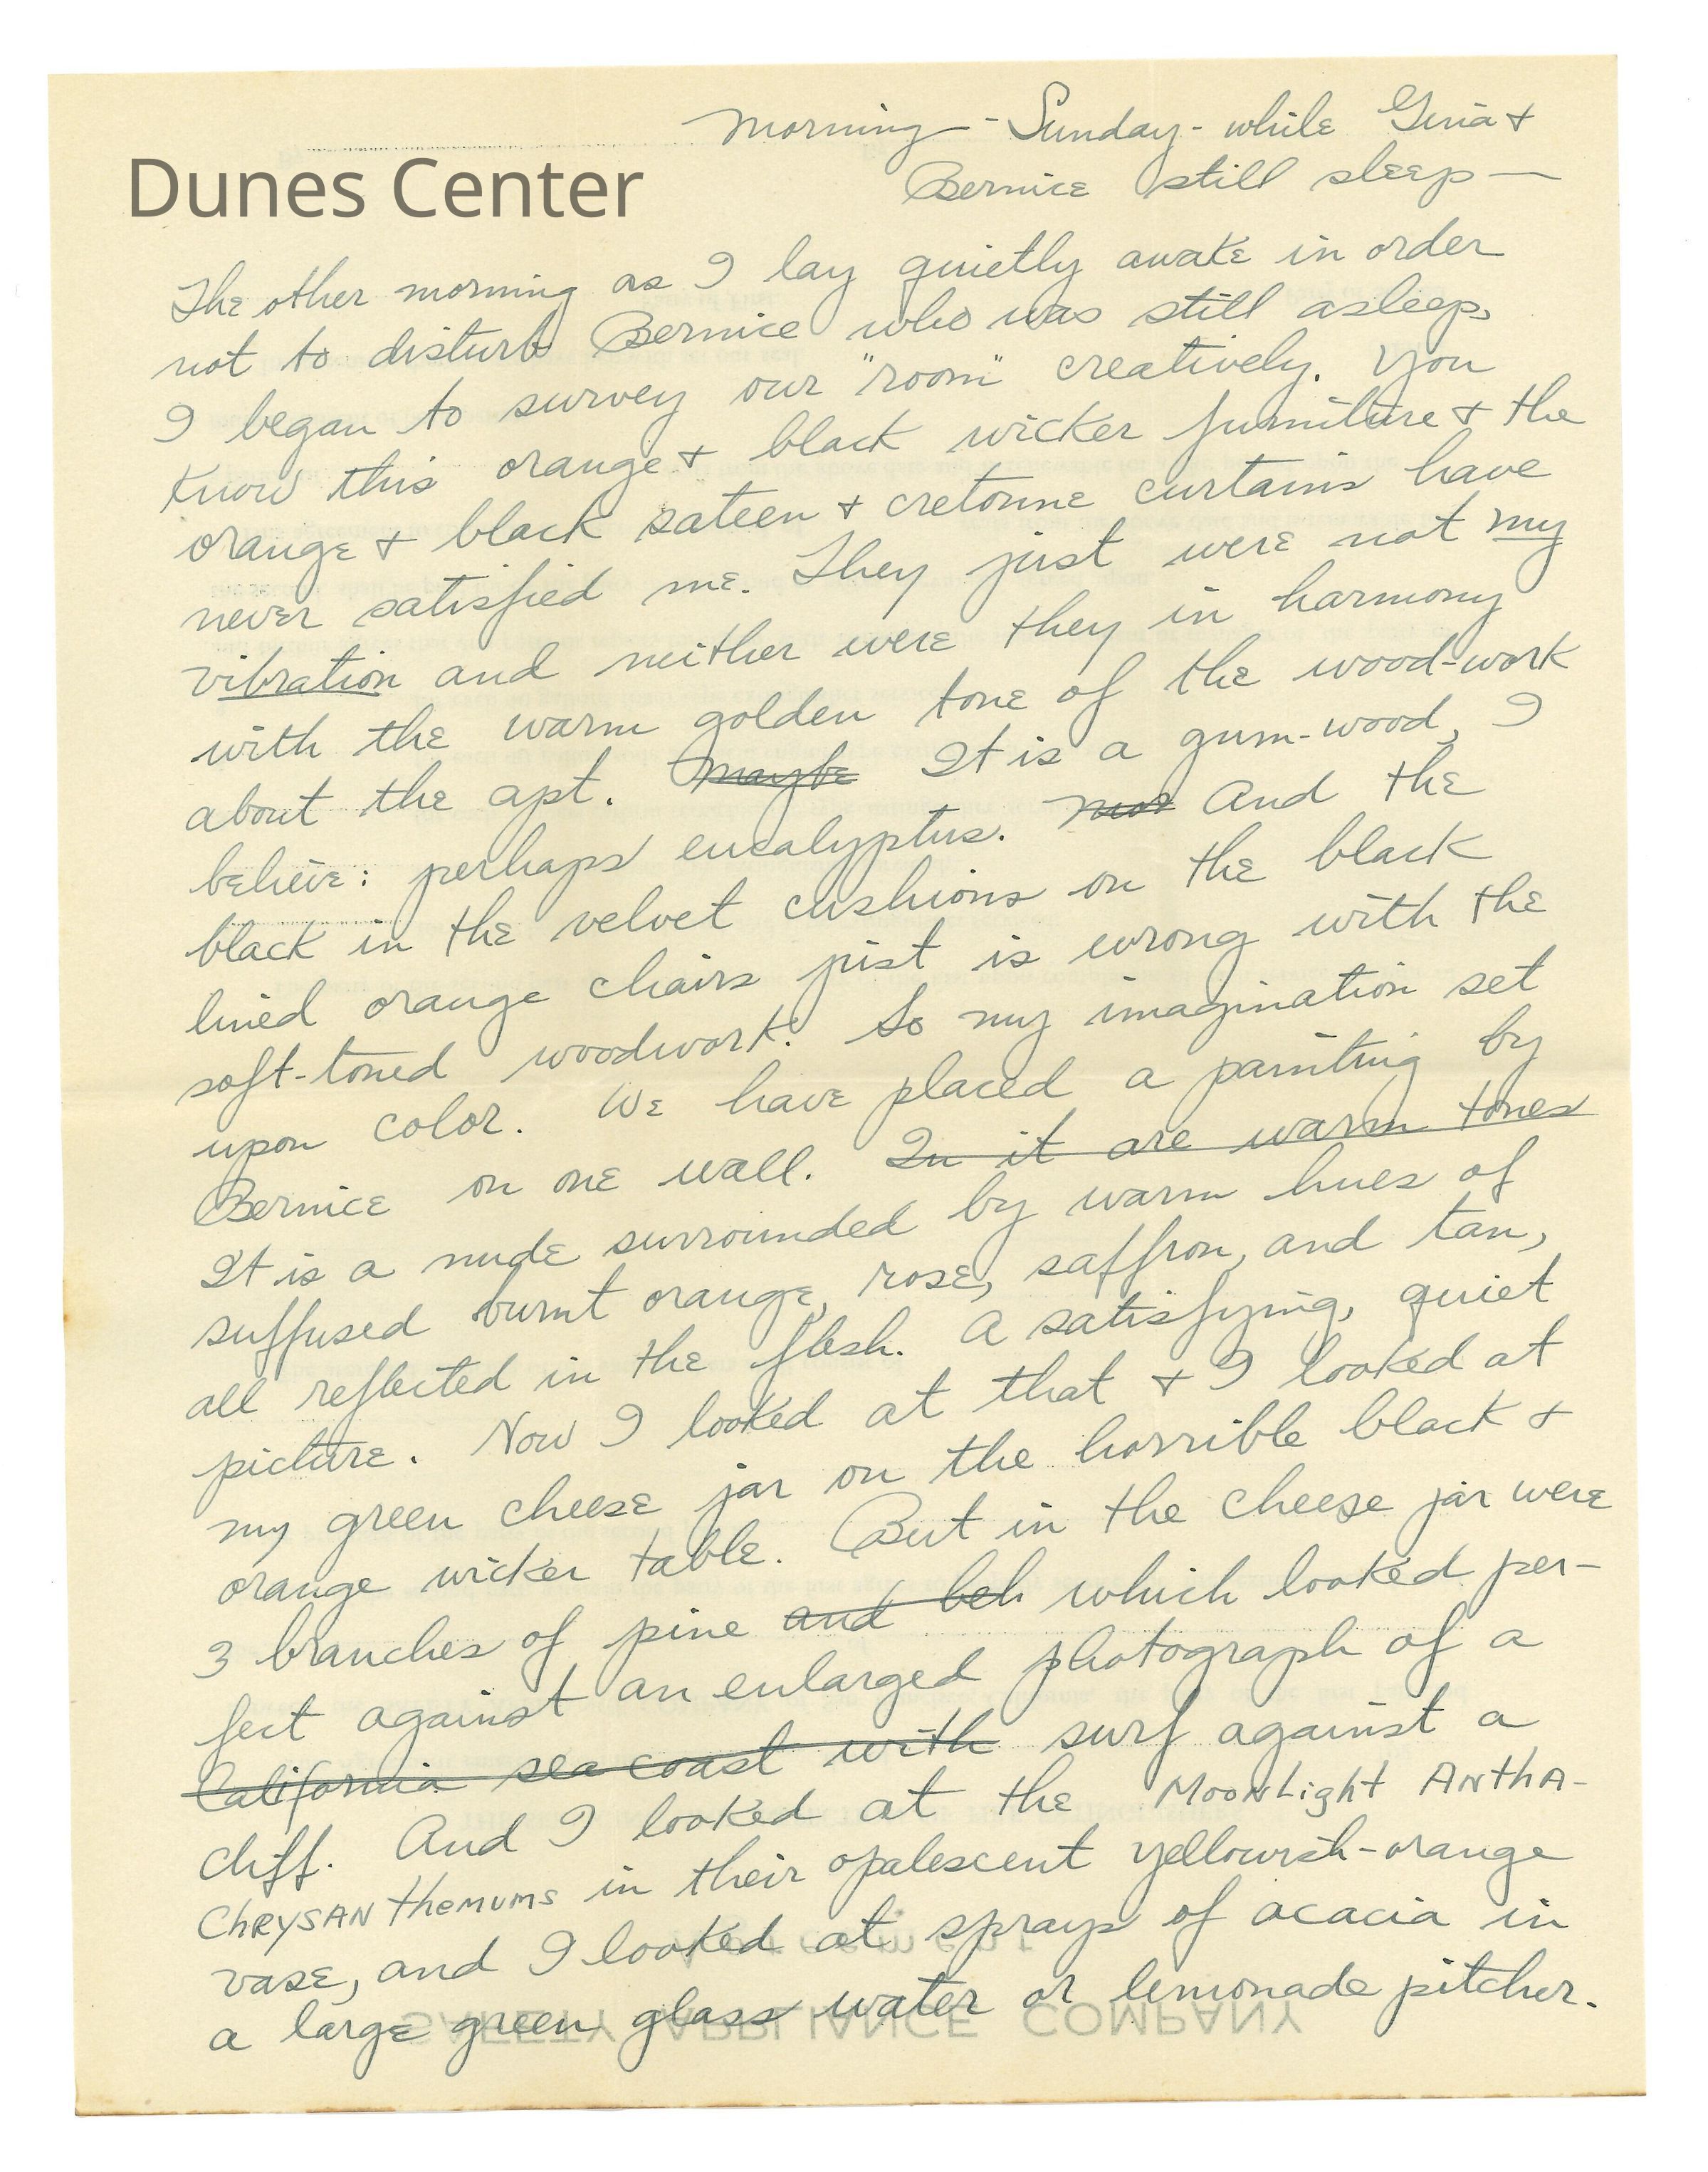 Morning - Sunday - while Gina &
Bernice still sleep —
Dunes Center
The other morning as I lay quietly awake in order
not to disturb Bernice who was still asleep,
I began to survey our "room" creatively. You
know this orange & black wicker furniture & the
orange & black sateen & cretonne curtains have
never satisfied me. They just were not my
vibration and neither were they in harmony
with the warm golden tone of the wood-work
about the apt. maybe It is a gum-wood, I
believe: perhaps eucalyptus. And the
black in the velvet cushions on the black
lined orange chairs just is wrong with the
soft-toned woodwork. So my imagination set
upon color. We have placed a painting by
Bernice on one wall. In it are warm tones
It is a nude surrounded by warm hues of
suffused burnt orange, rose, saffron, and tan,
all reflected in the flesh. A satisfying, quiet
picture. Now I looked at that & I looked at
my green cheese jar on the horrible black &
orange wicker table. But in the cheese jar were
3 branches of pine and beh which looked per-
fect against an enlarged photograph of a
California sea coast with surf against a
cliff. And I looked at the MoonLight ANthA-
ChRYSANtheMUMS in their opalescent yellowish-orange
vase, and I looked at sprays of acacia in
a large green glass water or lemonade pitcher.
SAFETY APPLIANCE COMPANY